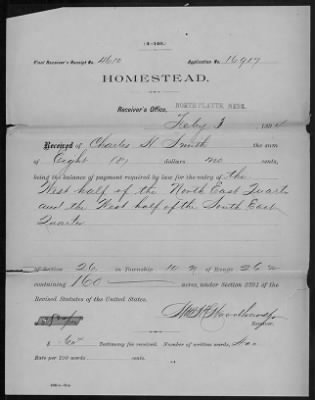 (4-140.)
Final Receiver's Receipt No. 4612 Application No. 16917
HOMESTEAD.
Receiver's Office, NORTH PLATTE, NEBR.
Feby 1 189
Received of Charles H. Smith the sum
of Eight (8) dollars no cents,
being the balance of payment required by law for the entry of the
West half of the North East Quarter
and the West half of the South East
Quarter
of Section 26 in Township 10 N of Range 26 W
containing 160 acres, under Section 2291 of the
Revised Statutes of the United States.
Receiver.
$ .64 Testimony fee received. Number of written words,
Rate per 100 words cents.